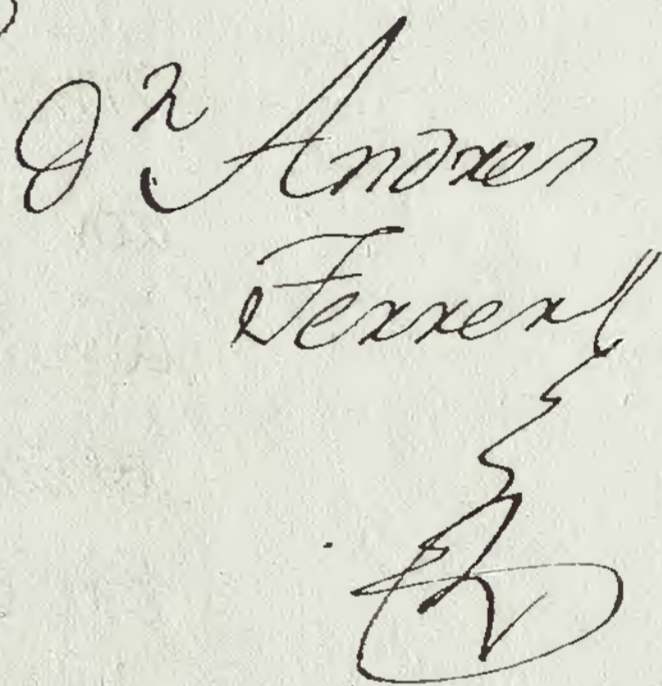 Dn Andres
Ferrer